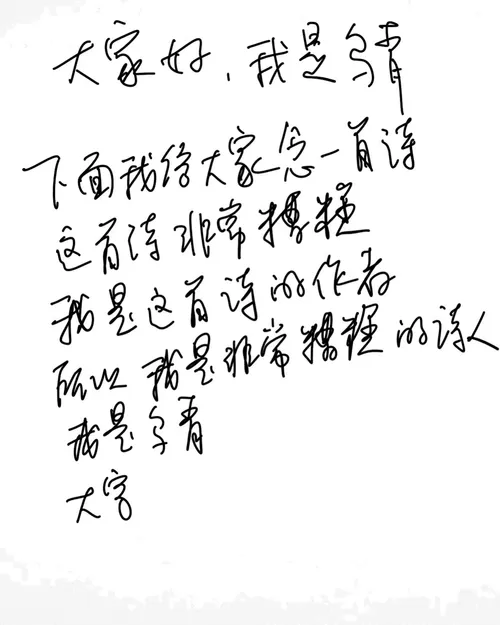 大家好,我是乌青
下面我给大家念一首诗
这首诗非常糟糕
我是这首诗的作者
所以我是非常糟糕的诗人
我是乌青
大家